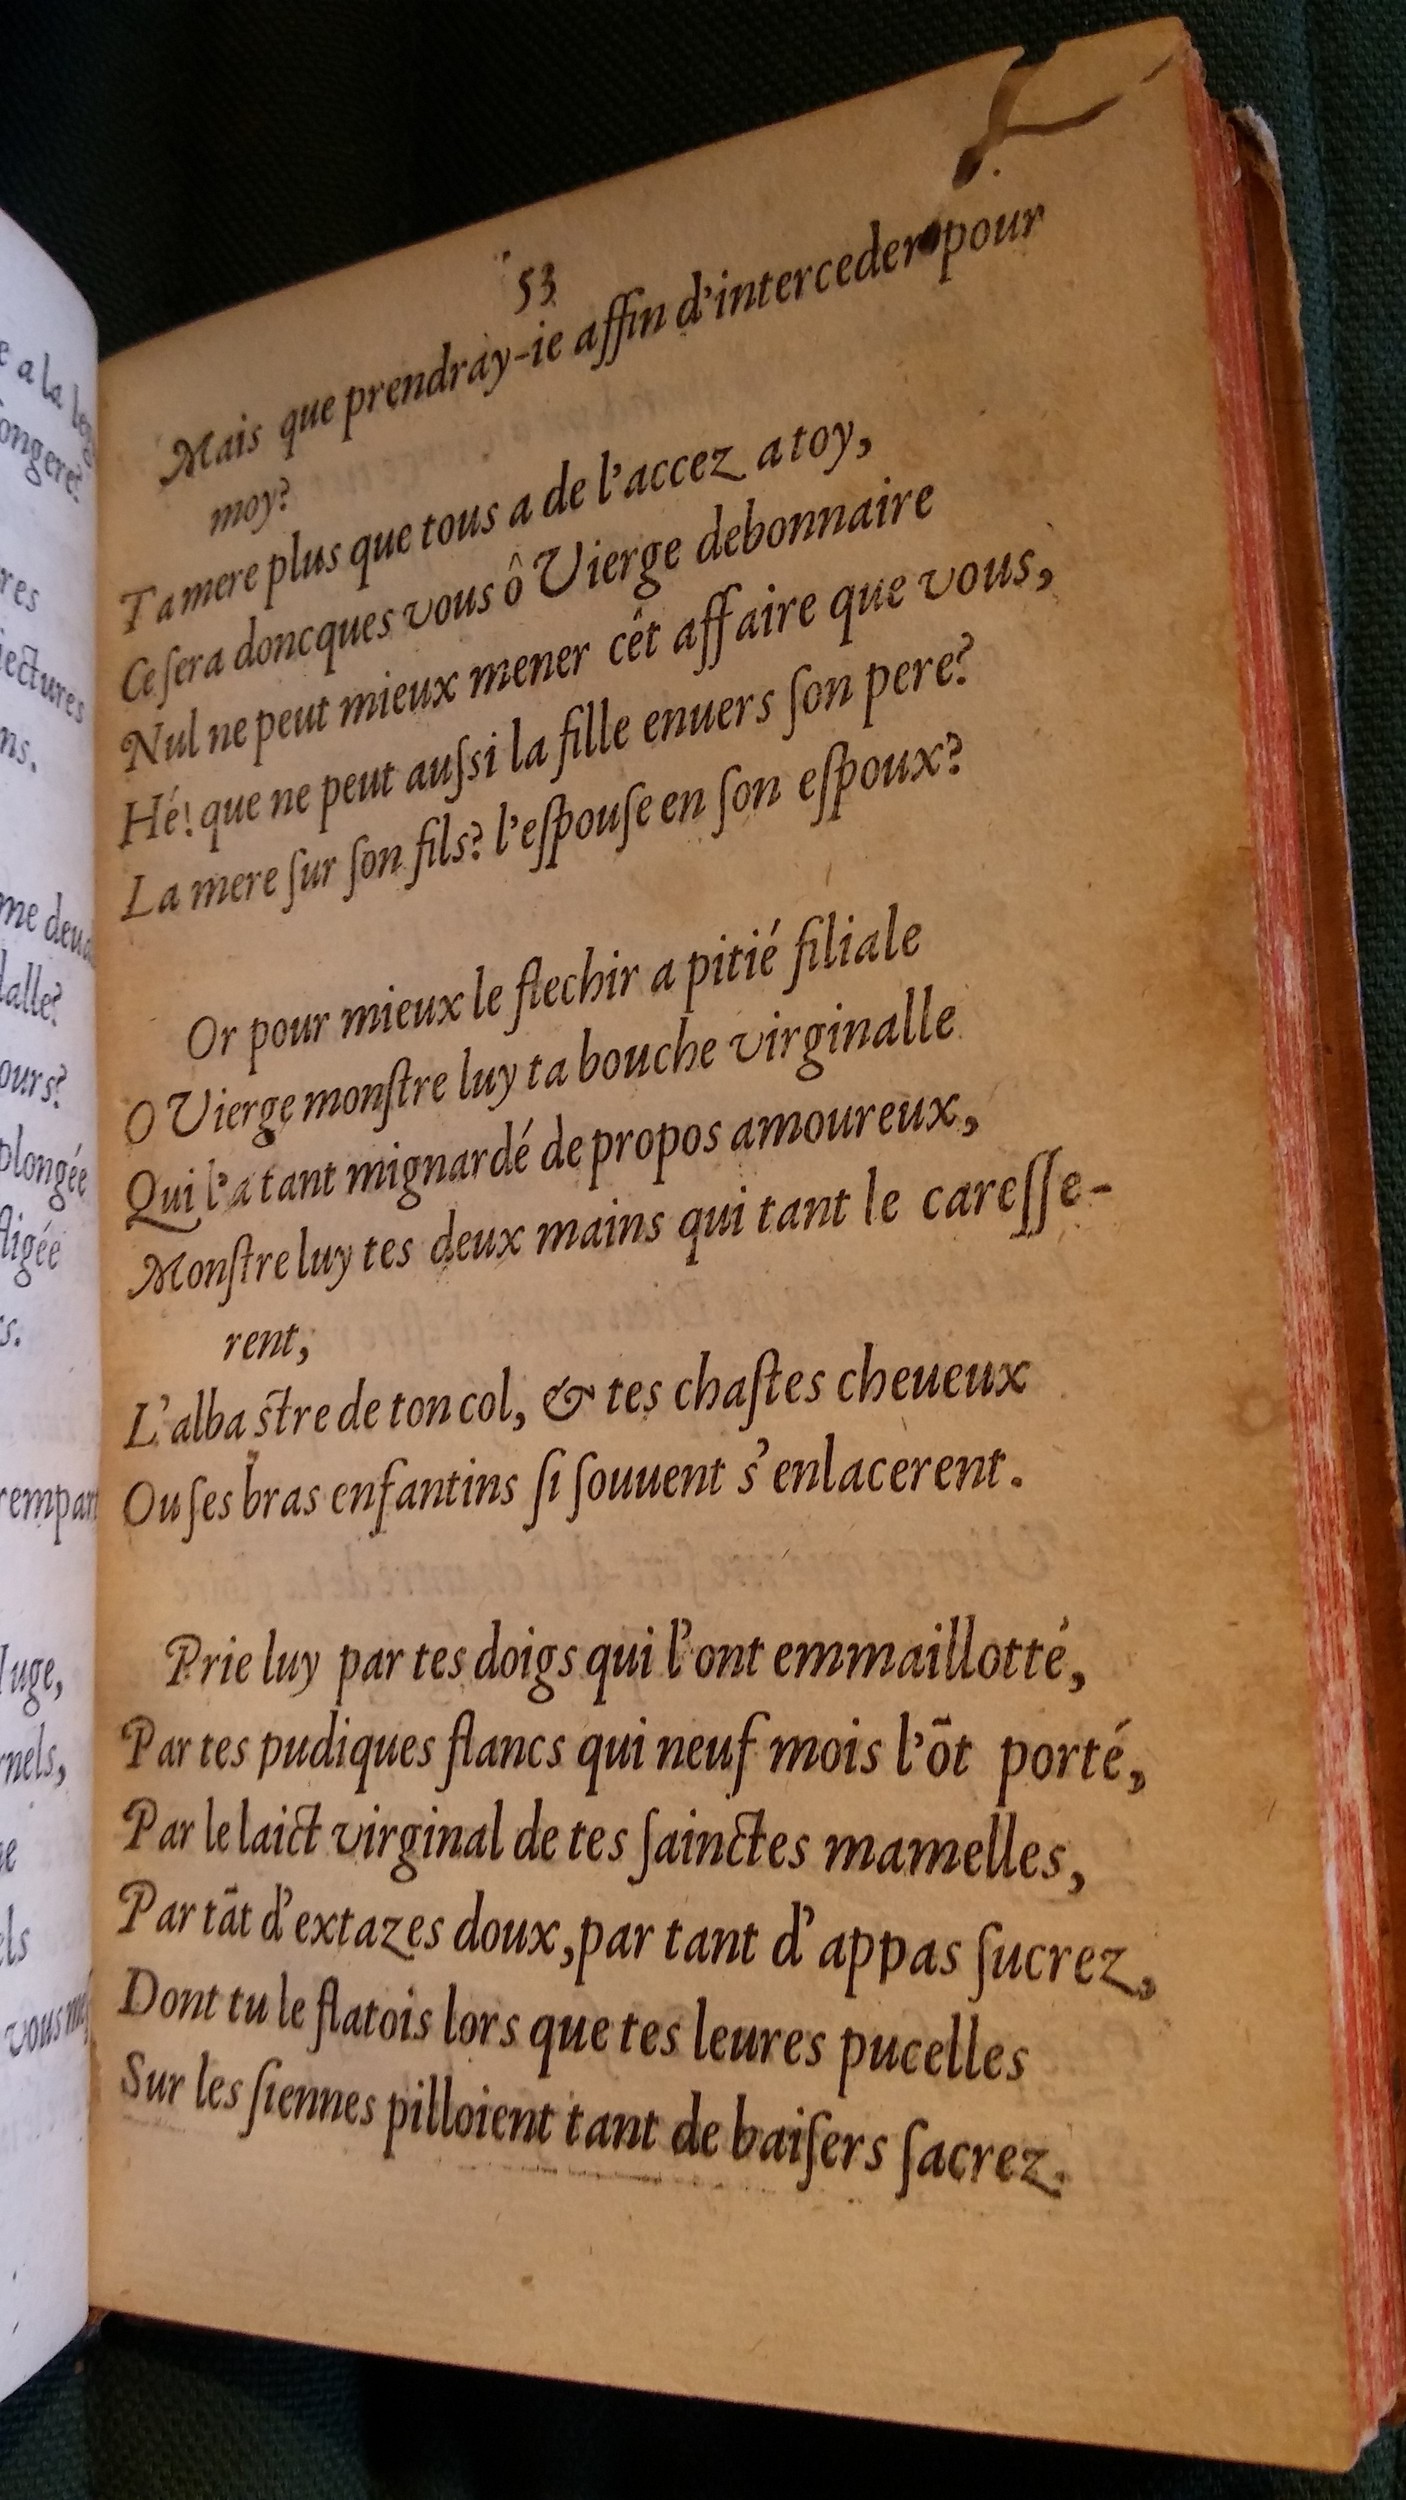 53
Mais que prendray-ie affin d'interceder pour
moy?
Ta mere plus que tous a de l'accez a toy,
Ce ſera doncques vous ô Vierge debonnaire
Nul ne peut mieux mener cét affaire que vous,
Hé! que ne peut auſsi la fille enuers ſon pere?
La mere ſur ſon fils? l'eſpouſe en ſon eſpoux?
Or pour mieux le flechir a pitié filiale
O Vierge monſtre luy ta bouche virginalle
Qui l'a tant mignardé de propos amoureux,
Monſtre luy tes deux mains qui tant le careſſe-
rent,
L'albaſtre de ton col, & tes chaſtes cheueux
Ou ſes bras enfantins ſi ſouuent s'enlacerent.
Prie luy par tes doigs qui l'ont emmaillotté,
Par tes pudiques flancs qui neuf mois l'õt porté,
Par le laict virginal de tes ſainctes mamelles,
Par tãt d'extazes doux, par tant d'appas ſucrez,
Dont tu le flatois lors que tes leures pucelles
Sur les ſiennes pilloient tant de baiſers ſacrez.
e a la
ongere?
res
iectures
ns.
me
alle?
ours?
plongée
fligée
s.
rempart
luge,
rnels,
e
els
vous